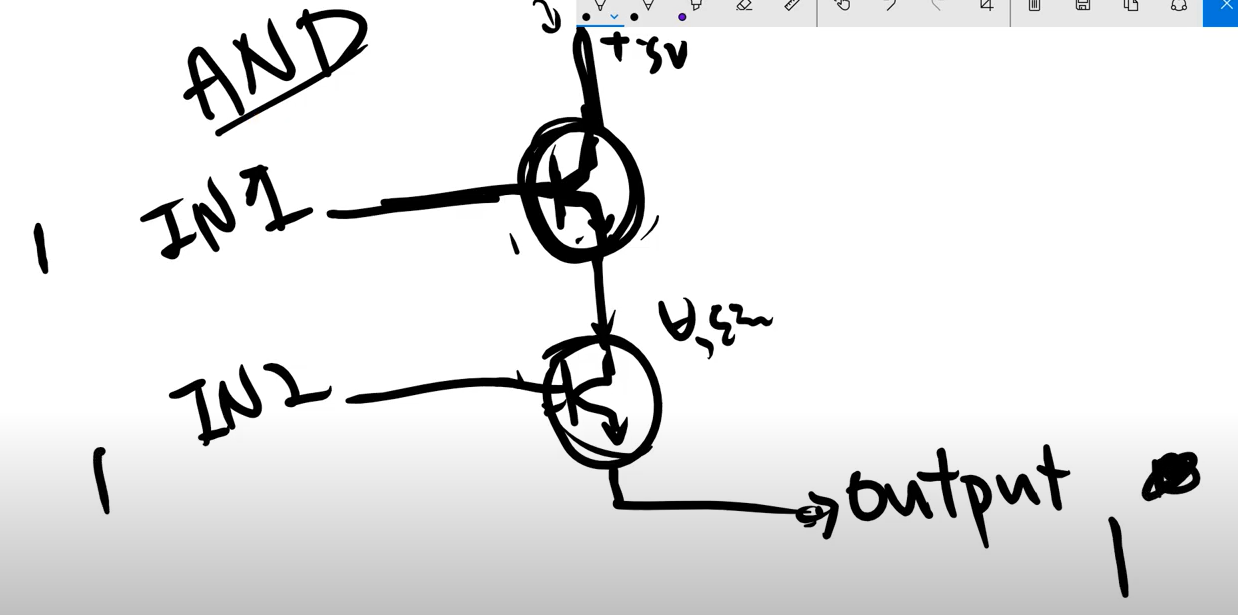 AND
+5V
IN1
1
IN2
1
output
1